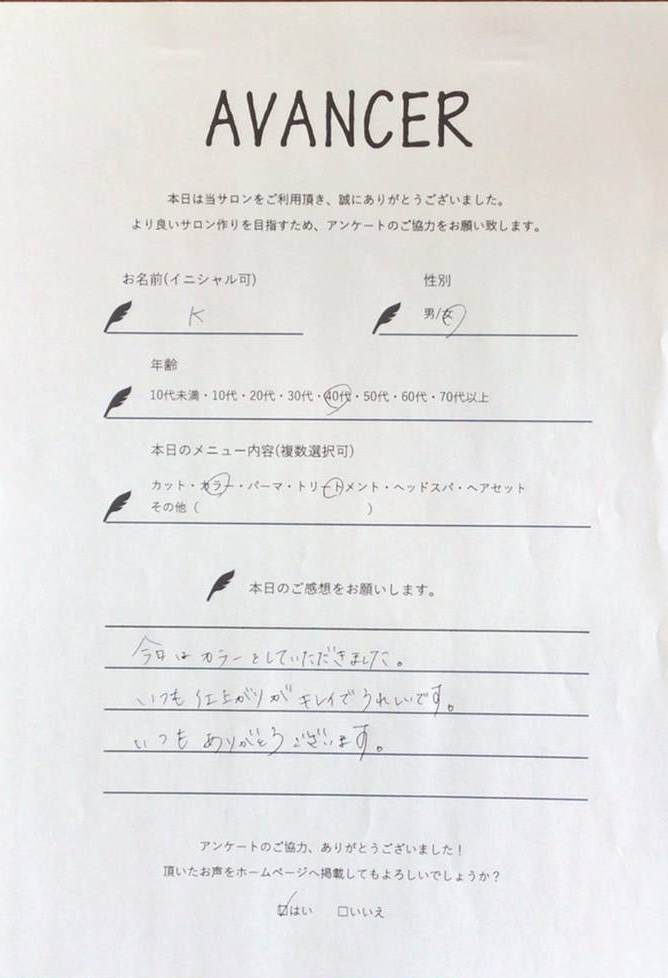 AVANCER
本日は当サロンをご利用頂き、誠にありがとうございました。
より良いサロン作りを目指すため、アンケートのご協力をお願い致します。
お名前(イニシャル可)
K
性別
男/女
年齢
10代未満・10代・20代・30代・40代・50代・60代・70代以上
本日のメニュー内容(複数選択可)
カット・カラー・パーマ・トリートメント・ヘッドスパ・ヘアセット
その他( )
本日のご感想をお願いします。
今日はカラーをしていただきました。
いつも仕上がりがキレイでうれしいです。
いつもありがとうございます。
アンケートのご協力、ありがとうございました！
頂いたお声をホームページへ掲載してもよろしいでしょうか？
☑はい □いいえ